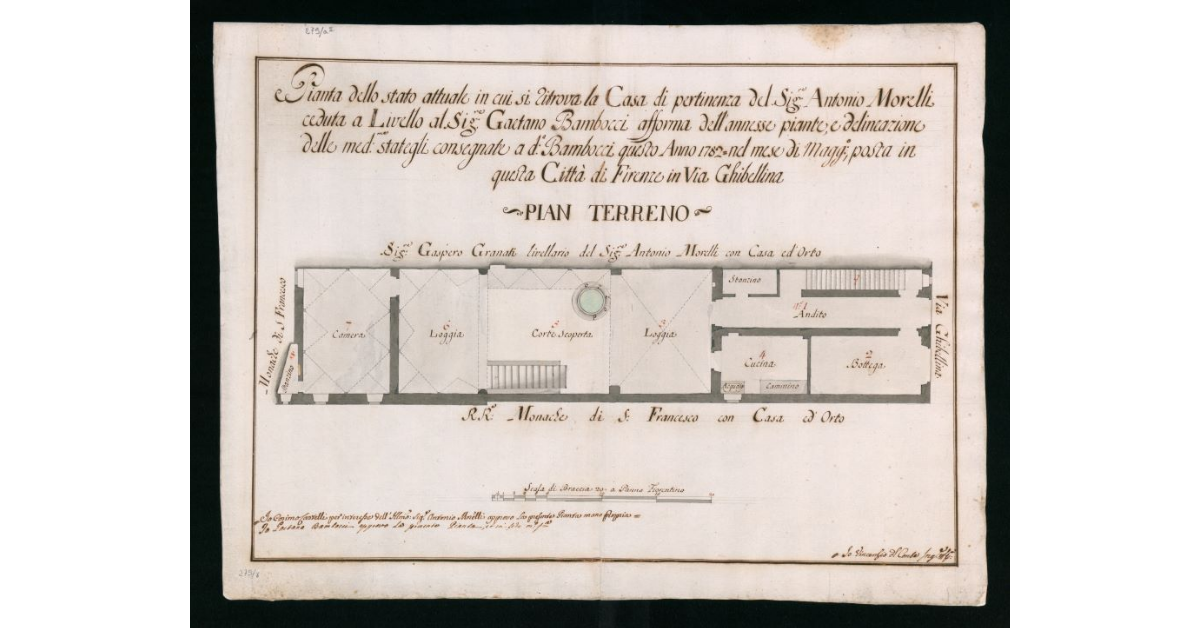 279/a
Pianta dello stato attuale in cui si ritrova la Casa di pertinenza del Sig.re Antonio Morelli
ceduta a Livello al Sig.re Gaetano Bambocci afforma dell'annesse piante, e delineazione
delle med.me stategli consegnate a d.o Bambocci questo Anno 1782 nel mese di Magg.o, posta in
questa Città di Firenze in Via Ghibellina
PIAN TERRENO
Sig.re Gaspero Granati livellario del Sig.re Antonio Morelli con Casa ed'Orto
Monache di S. Francesco
Stanzino
Camera
6
Loggia
5
Corte Scoperta
3
Loggia
Stanzino
Andito
4
Cucina
Acquaio
Cammino
2
Bottega
Via Ghibellina
RR. Monache di S. Francesco con Casa ed'Orto
Scala di Braccia 20 a Panno Fiorentino
Io Cosimo per interesse dell'Illmo. Sig.re Antonio Morelli approvo la presente Pianta mano Propria
Io Gaetano Bambocci approvo la presente Pianta
Io Vincenzio
279/a